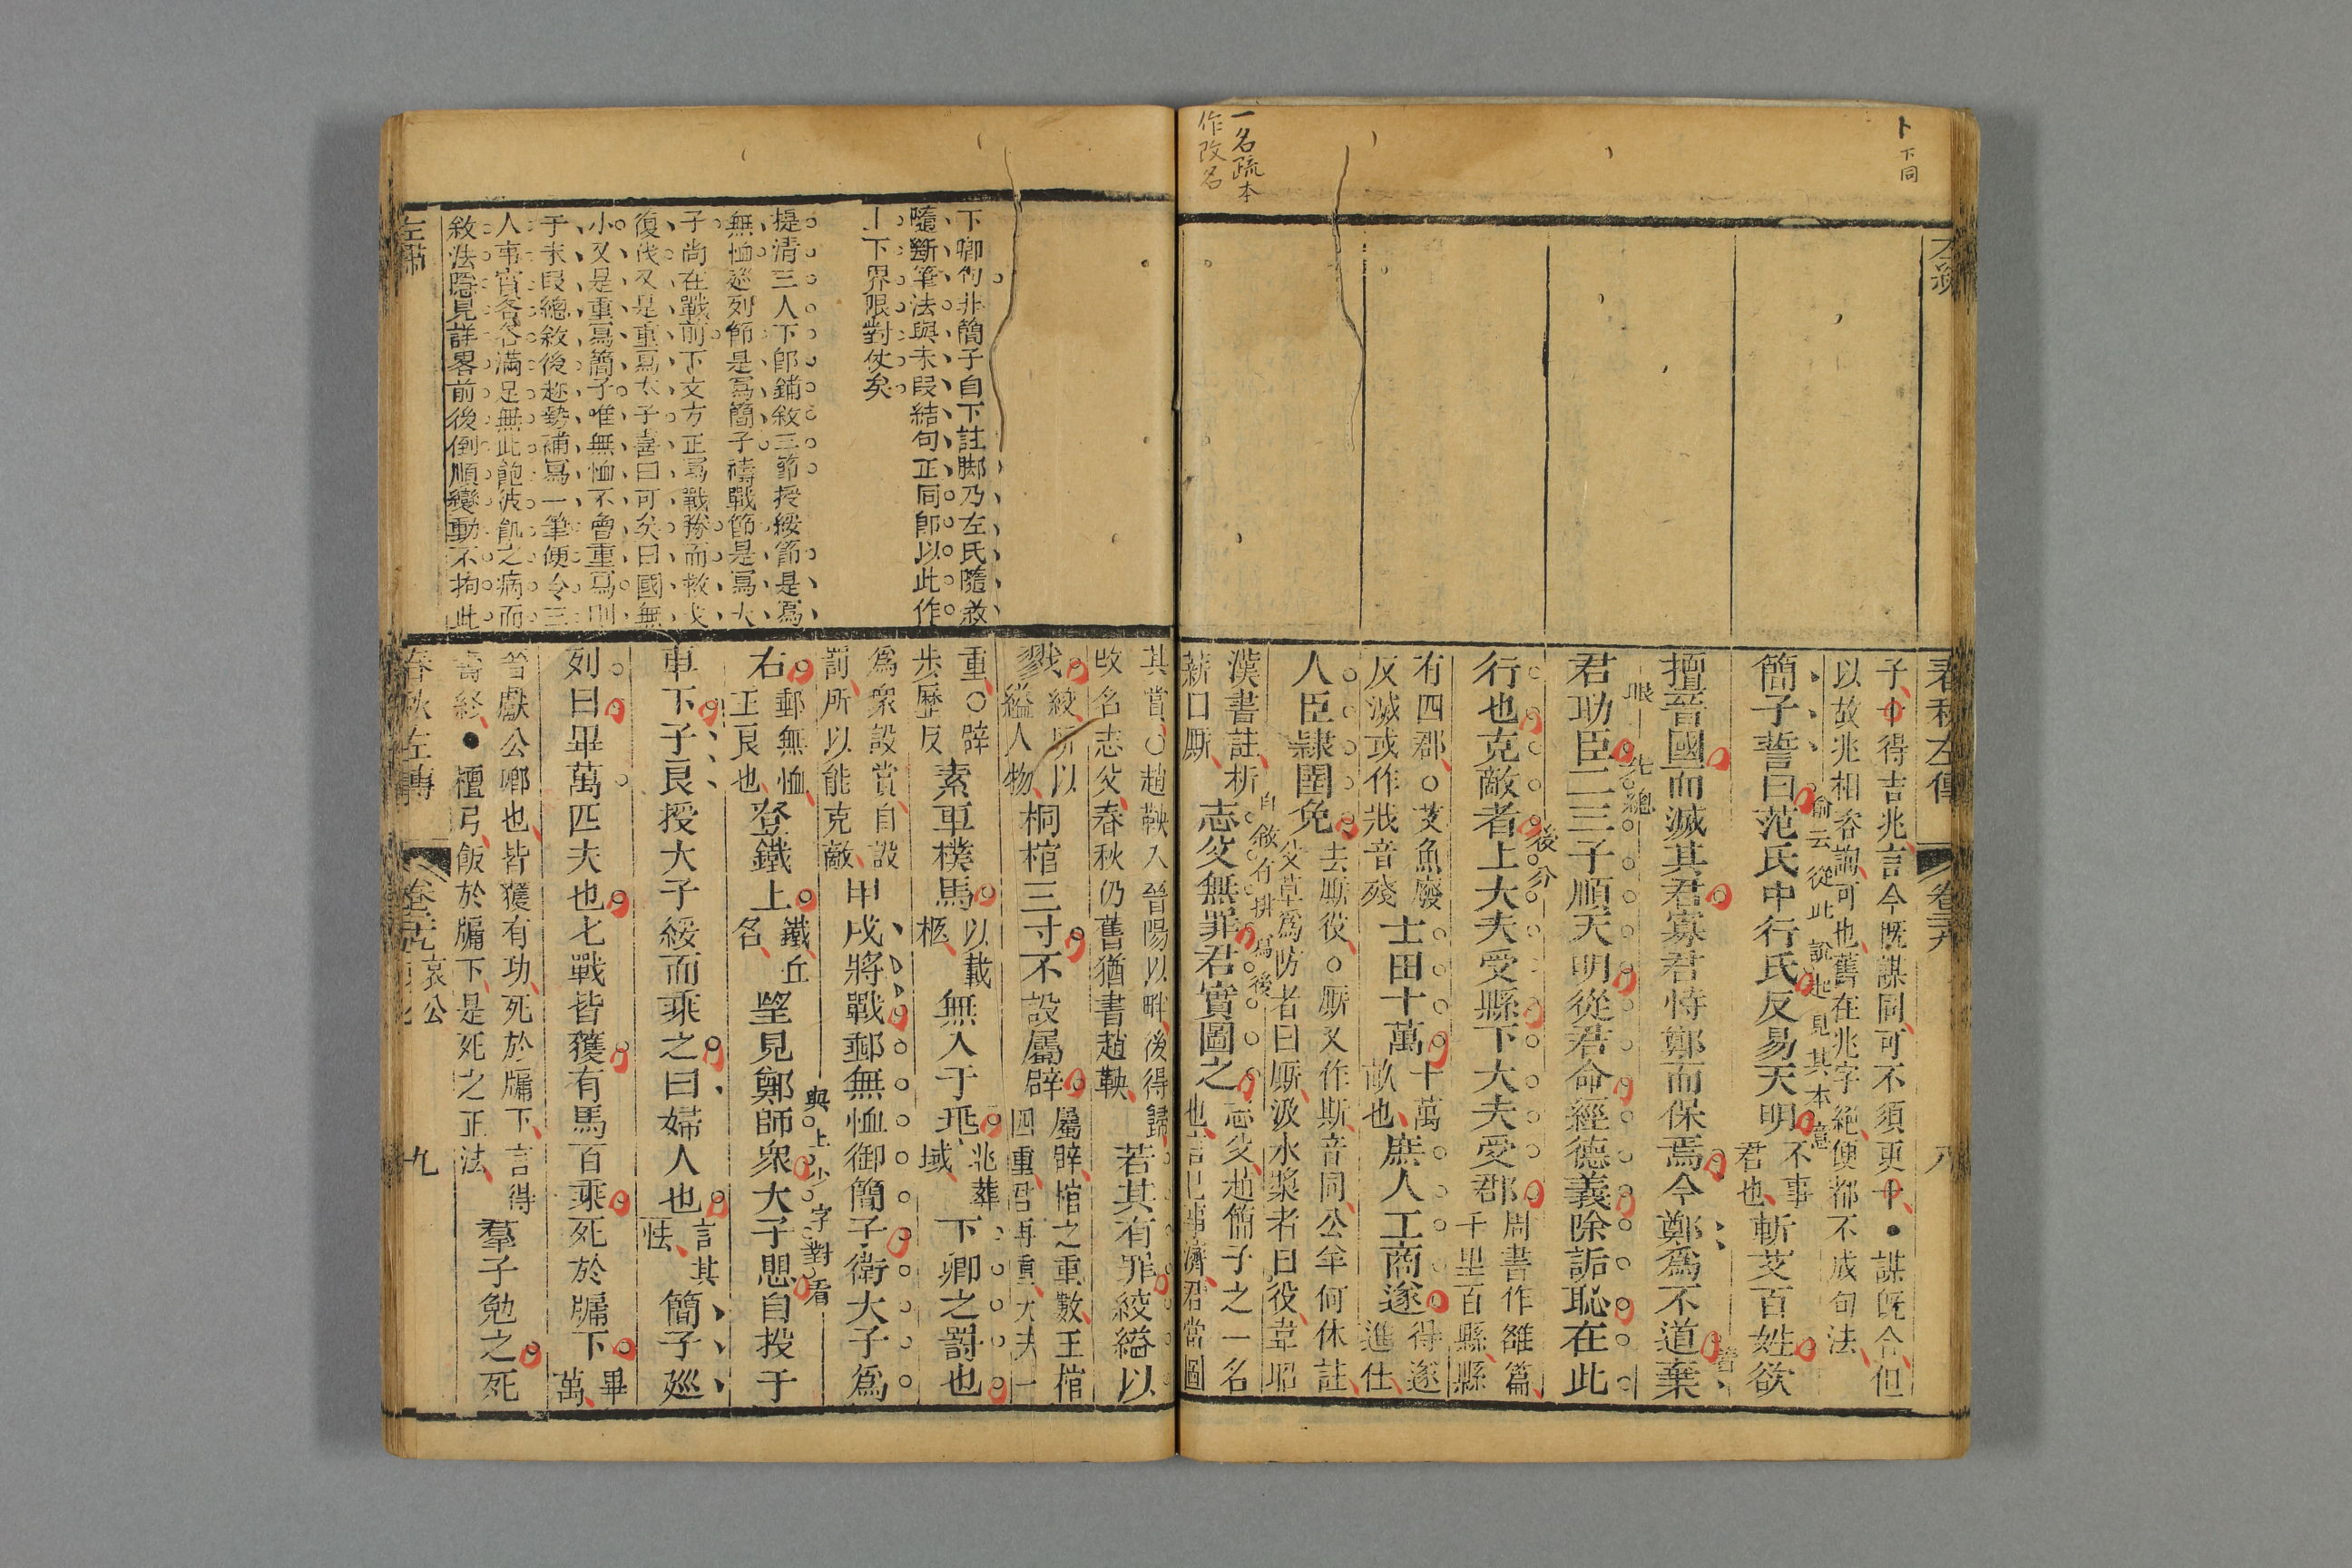 卜下同
一名疏本
作改名
春秋左傳
卷二十九
八
子卜得吉兆言今旣謀同可不須更卜●謀旣合但
以故兆相咨詢可也舊在兆字絕便都不成句法
簡子誓曰范氏中行氏反易天明不事君也斬艾百姓欲
俞云從此說起見其本意
擅晉國而滅其君寡君恃鄭而保焉今鄭爲不道棄
君助臣二三子順天明從君命經德義除詬恥在此
眼
先總
行也克敵者上大夫受縣下大夫受郡周書作雒篇千里百縣縣
後分
有四郡○艾魚廢反滅或作戕音殘士田十萬十萬畝也庶人工商遂得遂進仕
人臣隷圉免去厮役○厮又作斯音同公羊何休註艾草爲防者曰厮汲水漿者曰役韋昭
漢書註析薪曰厮志父無罪君實圖之志父趙簡子之一名也言己事濟君當圖
自敘有拼爲後
其賞○趙鞅入晉陽以畔後得歸改名志父春秋仍舊猶書趙鞅若其有罪絞縊以
戮絞所以縊人物桐棺三寸不設屬辟屬辟棺之重數王棺四重君再重大夫一
重○辟步歷反素車樸馬以載柩無入于兆兆葬域下卿之罰也
爲衆設賞自設罰所以能克敵甲戌將戰郵無恤御簡子衛大子爲
右郵無恤王良也登鐵上鐵丘名望見鄭師衆大子思自投于
與上少字對看
車下子良授大子綏而乘之曰婦人也言其怯簡子廵
列曰畢萬匹夫也七戰皆獲有馬百乘死於牖下畢萬
晉獻公卿也皆獲有功死於牖下言得壽終●檀弓飯於牖下是死之正法羣子勉之死
下卿句非簡子自下註脚乃左氏隨敘
隨斷筆法與末段結句正同卽以此作
上下界限對仗矣
提清三人下卽鋪敘三節授綏節是寫
無恤廵列節是寫簡子禱戰節是寫大
子尚在戰前下文方正寫戰務而救戈
復伐又是重寫大子喜曰可矣曰國無
小又是重寫簡子唯無恤不曾重寫則
于末段總敘後趁勢補寫一筆便令三
人事實各各滿足無此飽彼飢之病而
敘法隱見詳畧前後倒順變動不拘此
左繡
春秋左傳
哀公
九